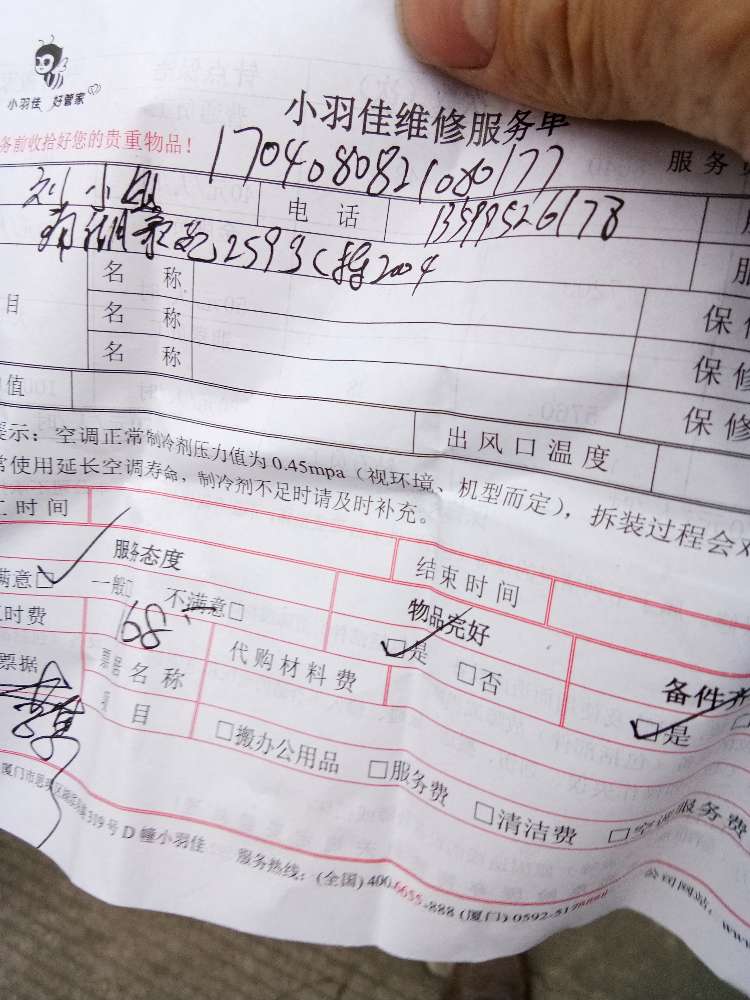 小羽佳 好管家
小羽佳维修服务单
务前收拾好您的贵重物品！
1704080821080177
服务
刘小 电话 13599526178
南湖 2593 204
名称
日 名称 保修
名称 保修
值 出风口温度 保修
提示：空调正常制冷剂压力值为0.45mpa（视环境、机型而定），拆装过程会对
常使用延长空调寿命，制冷剂不足时请及时补充。
工时间 结束时间
服务态度 物品完好 备件齐
满意□ 一般□ 不满意□ □是 □否 □是
工时费 168 代购材料费
票据 票据名称
项目 □搬办公用品 □服务费 □清洁费 □空调服务费
厦门市思明区 319号D幢小羽佳 服务热线：(全国) 400-6655-888 (厦门) 0592-517 公司网站：www